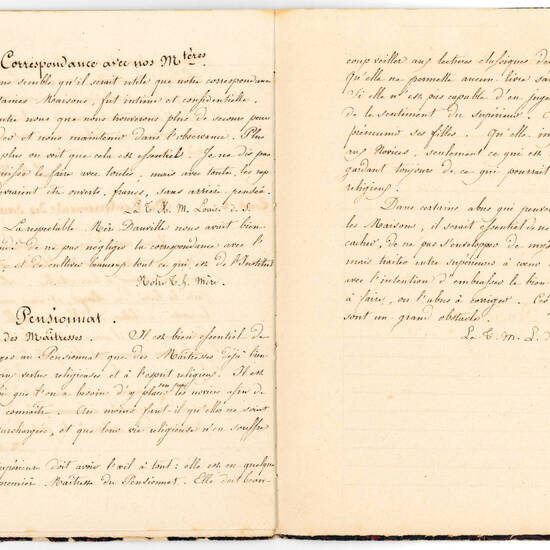 Correspondance avec nos Mtères
me semble qu'il serait utile que notre correspondance
Maisons, fut intime et confidentielle.
nous que nous trouverons plus de secours pour
et nous maintenir dans l'observance. Plus
plus on voit que cela est essentiel. Je ne dis pas
le faire avec toutes, mais avec toute, les rap
devraient être ouverts, francs, sans arrière pensée.
La T. R. M. Louis. d. S.
La respectable Mère Danville nous avait bien
de ne pas négliger la correspondance avec l'
et de cultiver beaucoup tout ce qui est de l'Institut
Notre T. h. Mère.
Pensionnat.
des Maîtresses. Il est bien essentiel de
au Pensionnat que des Maîtresses déjà bien
vertus religieuses et à l'esprit religieux. Il est
que l'on a besoin d'y placer les novices afin de
connaître. Au moins faut-il qu'elles ne soient
surchargées, et que leur vie religieuse n'en souffre
supérieure doit avoir l'œil à tout : elle est en quelque
première Maîtresse du Pensionnat. Elle doit beau-
coup veiller aux lectures classiques de
qu'elle ne permette aucun livre san
Si elle n'est pas capable d'en juger
de le sentiment du Supérieur. E
prémunir ses filles. Qu'elle in
aux Novices, seulement ce qui est
gardant toujours de ce qui pourrait
religieux.
Dans certains abus qui peuven
les Maisons, il serait essentiel de ne
cacher, de ne pas s'envelopper de mys
mais traiter entre supérieures à cœur o
avec l'intention d'embrasser le bien
à faire, ou l'abus à corriger. Ces
sont un grand obstacle.
La T. M. L.